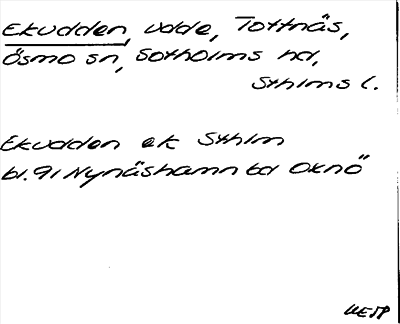 Ekudden, udde, Tottnäs,
Ösmo sn, Sotholms hd,
Sthlms l.
Ekudden ek Sthlm
bl. 91 Nynäshamn bd Oknö